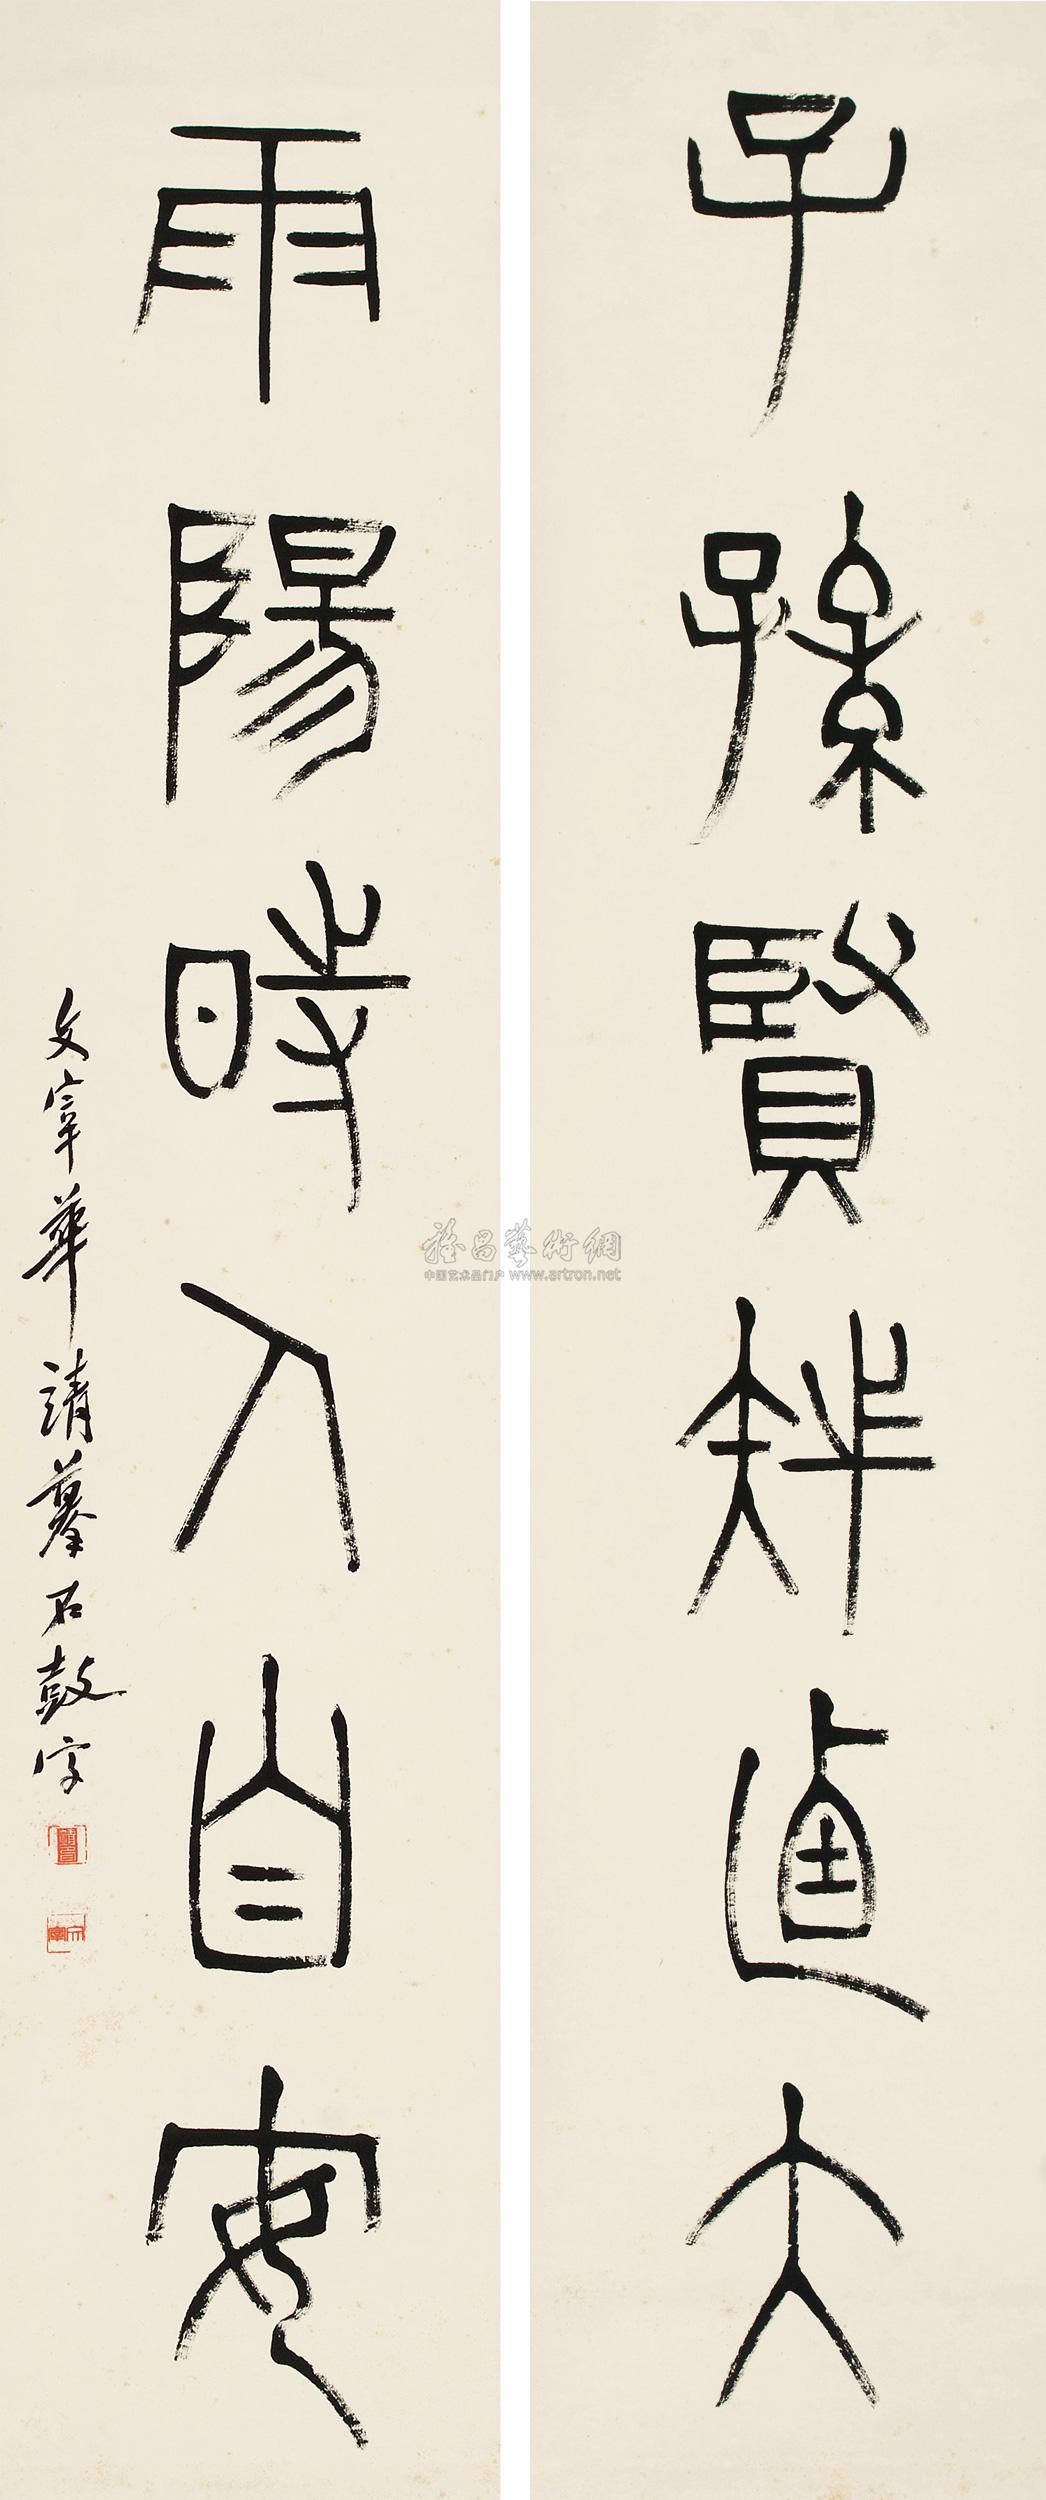 子孫賢直大
雨陽時人自安
文宰華摹石鼓字
雅昌藝術網
中国艺术品门户 www.artron.net